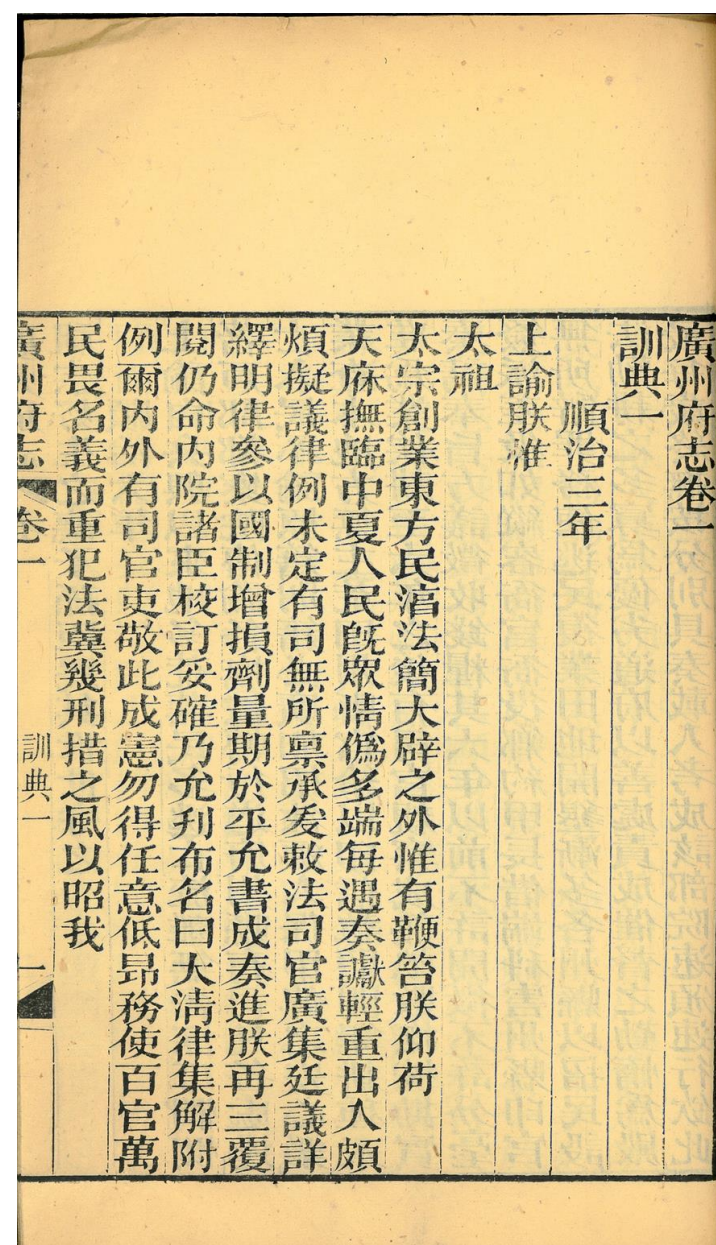 廣州府志卷一
訓典一
順治三年
上諭朕惟
太祖
太宗創業東方民淳法簡大辟之外惟有鞭笞朕仰荷
天庥撫臨中夏人民旣眾情僞多端每遇奏讞輕重出入頗
煩擬議律例未定有司無所稟承爰敕法司官廣集廷議詳
繹明律參以國制增損劑量期於平允書成奏進朕再三覆
閱仍命內院諸臣校訂妥確乃允刋布名曰大淸律集解附
例爾內外有司官吏敬此成憲勿得任意低昂務使百官萬
民畏名義而重犯法冀幾刑措之風以昭我
廣州府志 卷一 訓典一 一